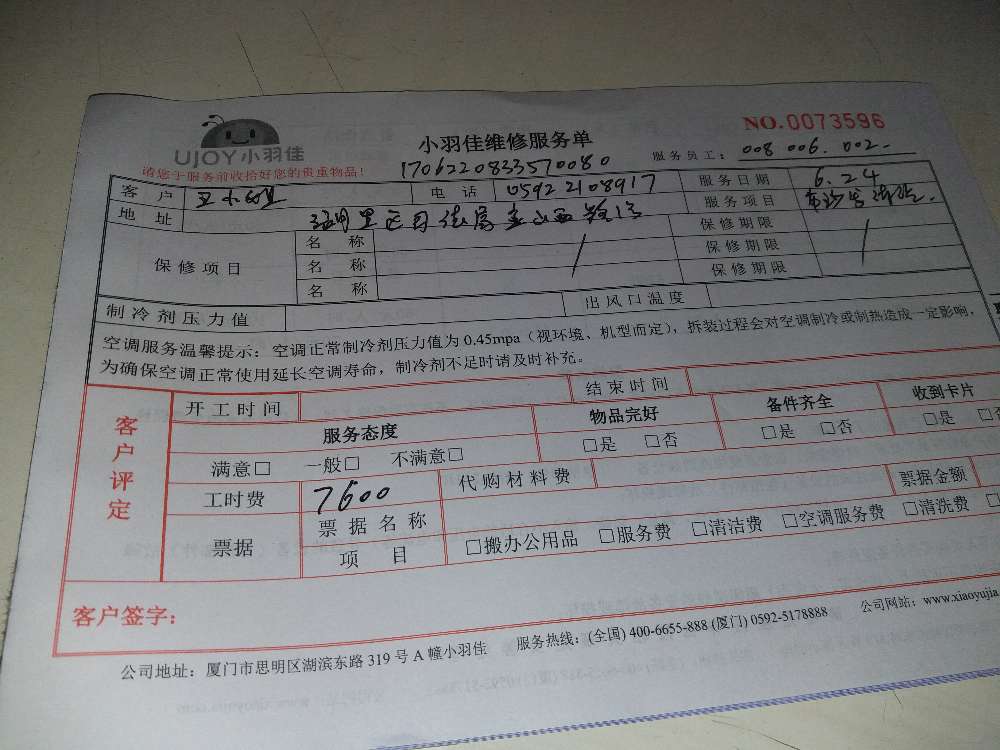 UJOY小羽佳
小羽佳维修服务单
NO.0073596
请您于服务前收拾好您的贵重物品!
1706220833570080
服务员工: 008 006. 002.
客户
电话 05922108917
服务日期 6.24
地址
服务项目
保修项目 名称 / 保修期限 /
名称 保修期限
名称 保修期限
制冷剂压力值 出风口温度
空调服务温馨提示: 空调正常制冷剂压力值为 0.45mpa (视环境、机型而定), 拆装过程会对空调制冷或制热造成一定影响,
为确保空调正常使用延长空调寿命, 制冷剂不足时请及时补充。
客户评定
开工时间 结束时间
服务态度 物品完好 备件齐全 收到卡片
满意□ 一般□ 不满意□ □是 □否 □是 □否 □是
工时费 7600 代购材料费 票据金额
票据 票据名称
项目 □搬办公用品 □服务费 □清洁费 □空调服务费 □清洗费 □
客户签字:
公司地址: 厦门市思明区湖滨东路 319 号 A 幢小羽佳 服务热线: (全国) 400-6655-888 (厦门) 0592-5178888 公司网站: www.xiaoyujia